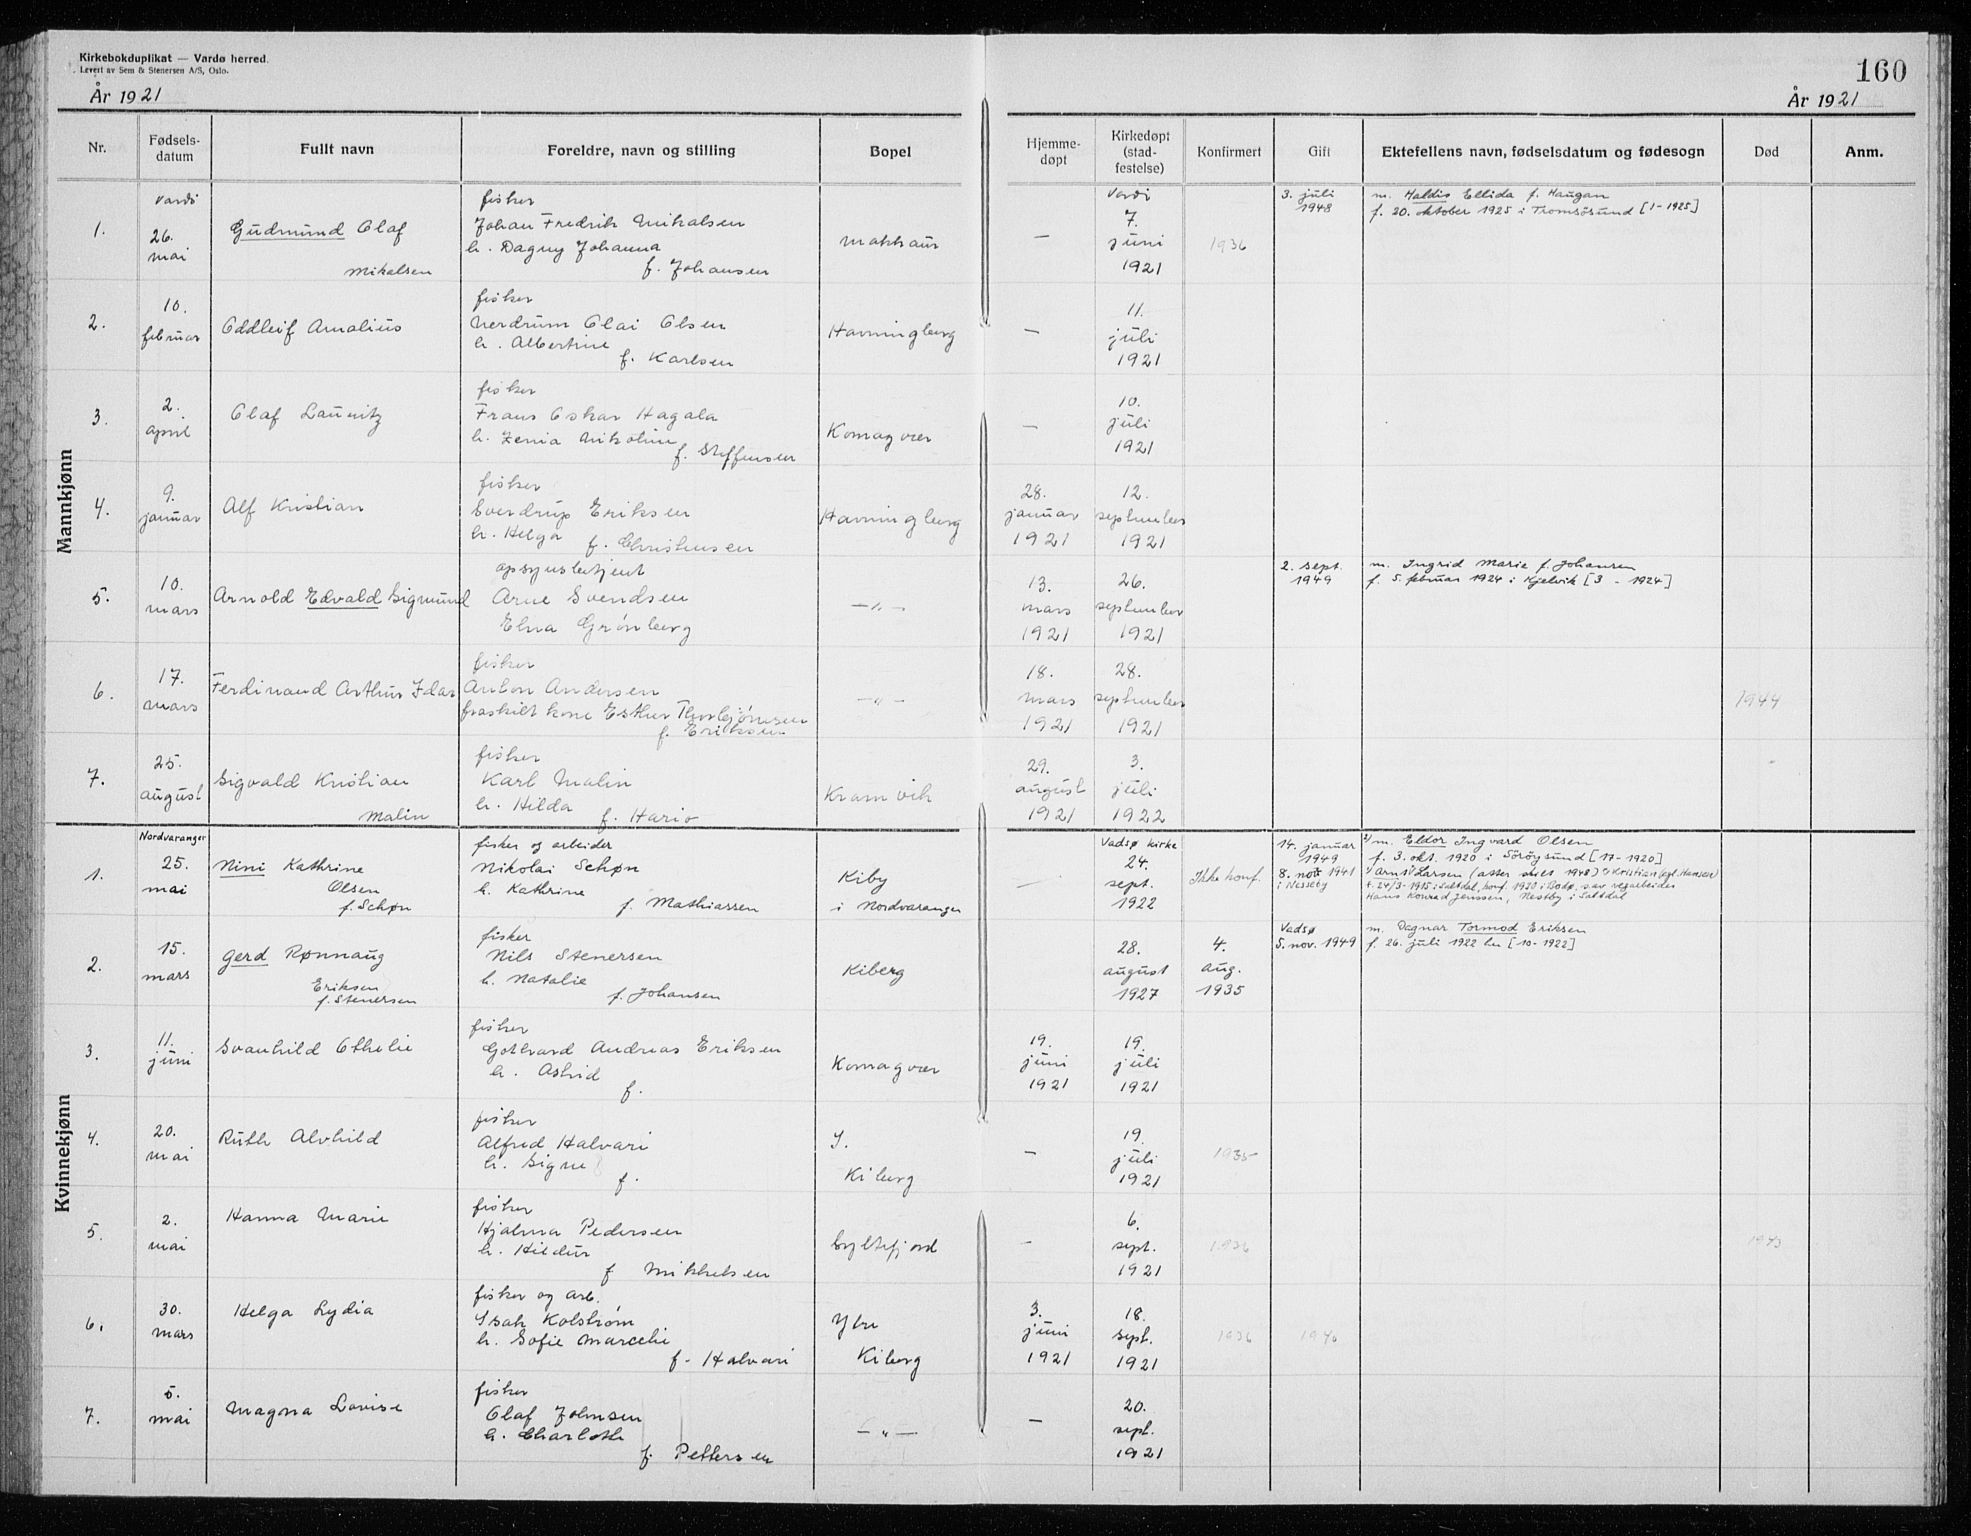 Kirkebokduplikat — Vardø herred.
Levert av Sem & Stenersen A/S, Oslo.
160
År 1921
År 1921
Nr.
Fødsels-
datum
Fullt navn
Foreldre, navn og stilling
Bopel
Hjemme-
døpt
Kirkedøpt
(stad-
festelse)
Konfirmert
Gift
Ektefellens navn, fødselsdatum og fødesogn
Død
Anm.
Mannkjønn
1.
26.
mai
Gudmund Olaf
Mikalsen
fisker
Johan Fredrik Mikalsen
h. Dagny Johanna
f. Johansen
Makkaur
—
7.
juni
1921
1936
3. juli
1948
m. Haldis Ellida f. Haugan
f. 20. oktober 1925 i Tromsösund [1-1925]
2.
10.
februar
Oddleif Amalius
fisker
Nerdrum Olai Olsen
h. Albertine
f. Karlsen
Havningberg
—
11.
juli
1921
3.
2.
april
Olaf Launitz
fisker
Frans Oskar Hagala
h. Zenia Nikoline
f. Steffensen
Komagvær
—
10.
juli
1921
4.
9.
januar
Alf Kristian
fisker
Sverdrup Eriksen
h. Helga
f. Christensen
Havningberg
28.
januar
1921
12.
september
1921
5.
10.
mars
Arnold Edvald Sigmund
opsynsbetjent
Arne Svendsen
Elna Grönberg
—"—
13.
mars
1921
26.
september
1921
2. sept.
1949
m. Ingrid Marie f. Johansen
f. 5. februar 1924 i Kjelvik [3 - 1924]
6.
17.
mars
Ferdinand Arthur Idar
fisker
Anton Andersen
fraskilt kone Esther Thorbjörnsen
f. Eriksen
—"—
18.
mars
1921
28.
september
1921
1944
7.
25.
august
Sigvald Kristian
Malin
fisker
Karl Malin
h. Hilda
f. Hario
Kramvik
29.
august
1921
3.
juli
1922
Kvinnekjønn
1.
Nordvaranger
25.
mai
Nini Kathrine
Olsen
f. Schøn
fisker og arbeider
Nikolai Schøn
h. Kathrine
f. Mathiassen
Kiby
i Nordvaranger
Vadsø kirke
24.
sept.
1922
Ikke konf.
14. januar
1949
8. nov 1941
i Nesseby
2) m. Eldor Ingvard Olsen
f. 3. okt. 1920 i Sörøysund [17-1920]
f. 24/3-1915 i Saltdal, konf. 1930 i Bodø, s av vegarbeider
Hans Konrad Jenssen, Nestby i Saltdal
2.
15.
mars
Gerd Rønnaug
Eriksen
f. Stenersen
fisker
Nils Stenersen
h. Natalie
f. Johansen
Kiberg
28.
august
1927
4.
aug.
1935
Vadsø
5. nov. 1949
m. Dagnar Tormod Eriksen
f. 26. juli 1922 her [10-1922]
3.
11.
juni
Svanhild Othelie
fisker
Gothard Andreas Eriksen
h. Astrid
f.
Komagvær
19.
juni
1921
19.
juli
1921
4.
20.
mai
Ruth Alvhild
fisker
Alfred Halvari
h. Signe
f.
Y.
Kiberg
—
19.
juli
1921
1935
5.
2.
mai
Hanna Marie
fisker
Hjalmar Pedersen
h. Hildur
f Mikkelsen
Syltefjord
—
6.
sept.
1921
1936
1943
6.
30.
mars
Helga Lydia
fisker og arb.
Isak Kolström
h. Sofie Marcelie
f. Halvari
Ytre
Kiberg
3.
juni
1921
18.
sept.
1921
1936
1940
7.
5.
mai
Magna Lovise
fisker
Olaf Johnsen
h. Charloth
f. Pettersen
—"—
—
20.
sept.
1921